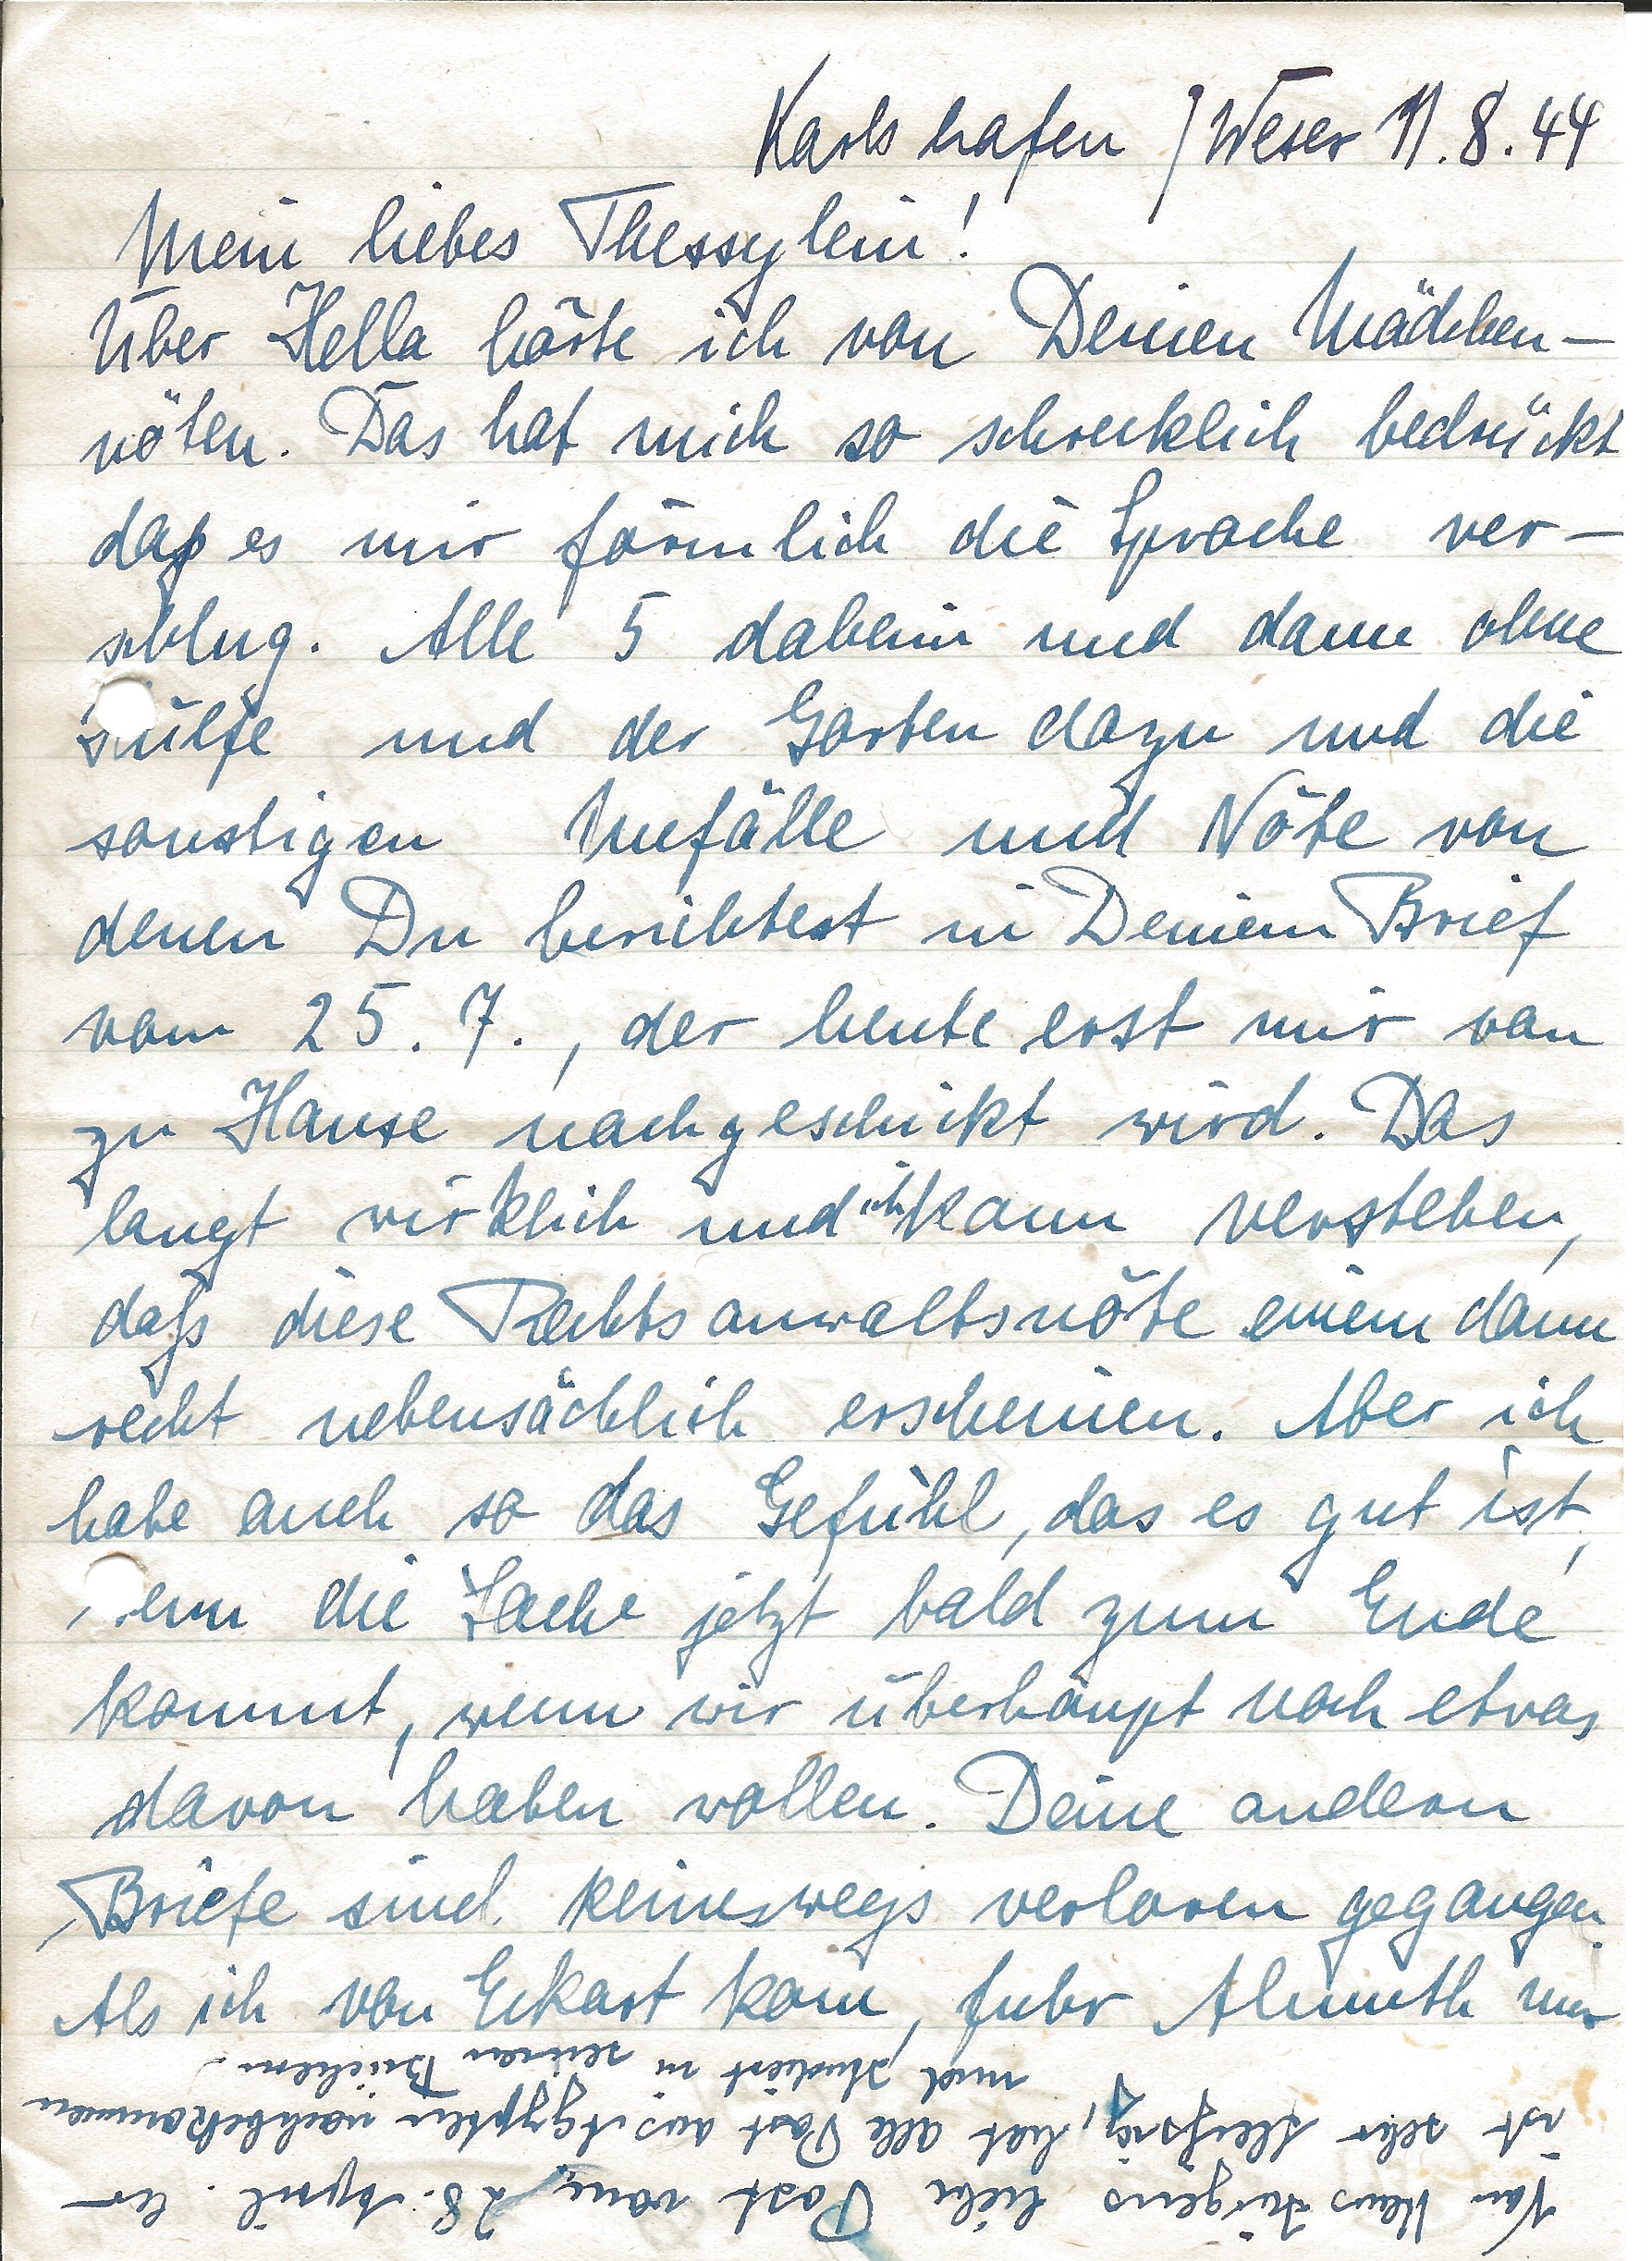 Karlshafen / Weser 11.8.44
Mein liebes Thessylein!
Über Hella hörte ich von Deinen Mädchen-
nöten. Das hat mich so schrecklich bedrückt
daß es mir förmlich die Sprache ver-
schlug. Alle 5 daheim und dann ohne
Hülfe und der Garten dazu und die
sonstigen Unfälle und Nöte von
denen Du berichtest in Deinem Brief
vom 25.7., der heute erst mir von
zu Hause nachgeschickt wird. Das
langt wirklich und ich kann verstehen,
daß diese Rechtsanwaltsnöte einem dann
recht nebensächlich erscheinen. Aber ich
habe auch so das Gefühl, das es gut ist,
wenn die Sache jetzt bald zum Ende
kommt, wenn wir überhaupt noch etwas
davon haben wollen. Deine andern
Briefe sind keineswegs verloren gegangen.
Als ich von Eckart kam, fuhr Almuth mir
Von Klaus Jürgens liebe Post vom 28. April. Er
ist sehr fleißig, hat alle Post aus Ägypten nachbekommen
und studiert in seinen Büchern.